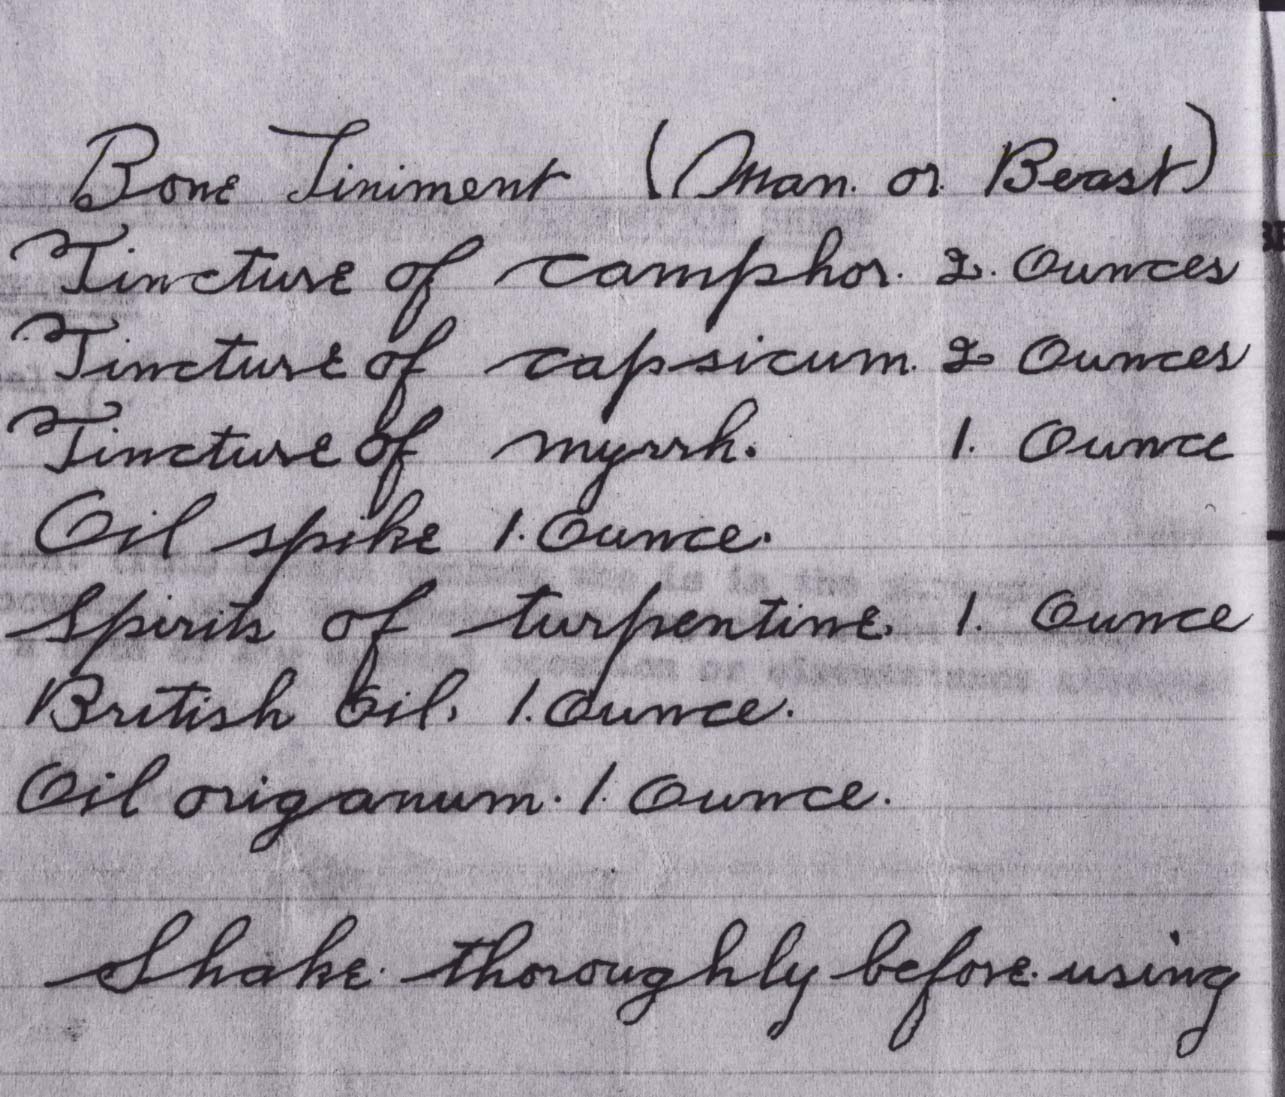 Bone Liniment (Man or Beast)
Tincture of camphor. 2. Ounces
Tincture of capsicum. 2 Ounces
Tincture of myrrh. 1. Ounce
Oil spike 1. Ounce.
Spirits of turpentine. 1. Ounce
British Oil. 1. Ounce.
Oil origanum. 1. Ounce.
Shake thoroughly before using